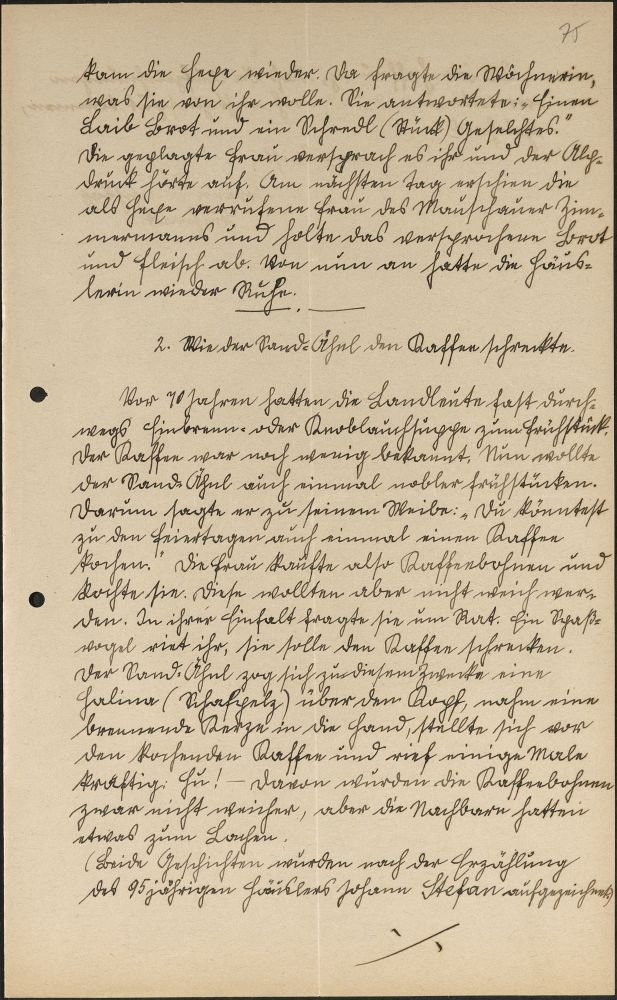 75
kam die Hexe wieder. Da fragte die Wöchnerin,
was sie von ihr wolle. Sie antwortete: „Einen
Laib Brot und ein Schredl (Stück) Geselchtes."
Die geplagte Frau versprach es ihr und der Alp-
druck hörte auf. Am nächsten Tag erschien die
als Hexe verrufene Frau des Mauschauer Zim-
mermanns und holte das versprochene Brot
und Fleisch ab. Von nun an hatte die Häus-
lerin wieder Ruhe.
2. Wie der Sand-Ähnl den Kaffee schreckte.
Vor 70 Jahren hatten die Landleute fast durch-
wegs Einbrenn- oder Knoblauchsuppe zum Frühstück.
Der Kaffee war noch wenig bekannt. Nun wollte
der Sand-Ähnl auch einmal nobler frühstücken.
Darum sagte er zu seinem Weibe: „Du könntest
zu den Feiertagen auch einmal einen Kaffee
kochen." Die Frau kaufte also Kaffeebohnen und
kochte sie. Diese wollten aber nicht weich wer-
den. In ihrer Einfalt fragte sie um Rat. Ein Spaß-
vogel riet ihr, sie solle den Kaffee schrecken.
Der Sand-Ähnl zog sich zu diesem Zwecke eine
Halina (Schafpelz) über den Kopf, nahm eine
brennende Kerze in die Hand, stellte sich vor
den kochenden Kaffee und rief einige Male
kräftig: Hu! — Davon wurden die Kaffeebohnen
zwar nicht weicher, aber die Nachbarn hatten
etwas zum Lachen.
(Beide Geschichten wurden nach der Erzählung
des 95jährigen Häuslers Johann Stefan aufgezeichnet)